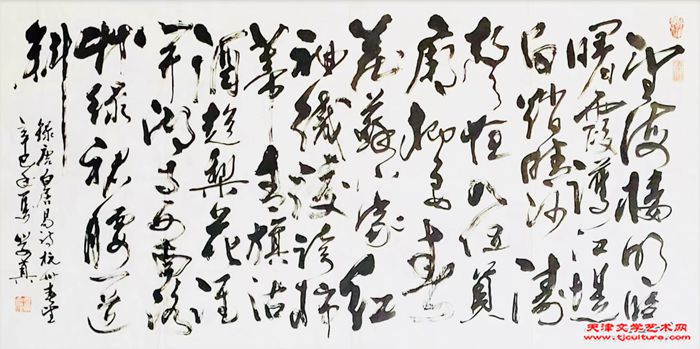 望海樓明照
曙霞護江堤
白踏晴沙濤
聲夜入伍員
廟柳色春
藏蘇小家紅
袖織綾誇柿
蒂青旗沽
酒趁梨花誰
開湖寺西南路
草綠裙腰一道
斜
錄唐白居易詩杭州春望
辛巳年夏
天津文学艺术网
www.tjculture.com